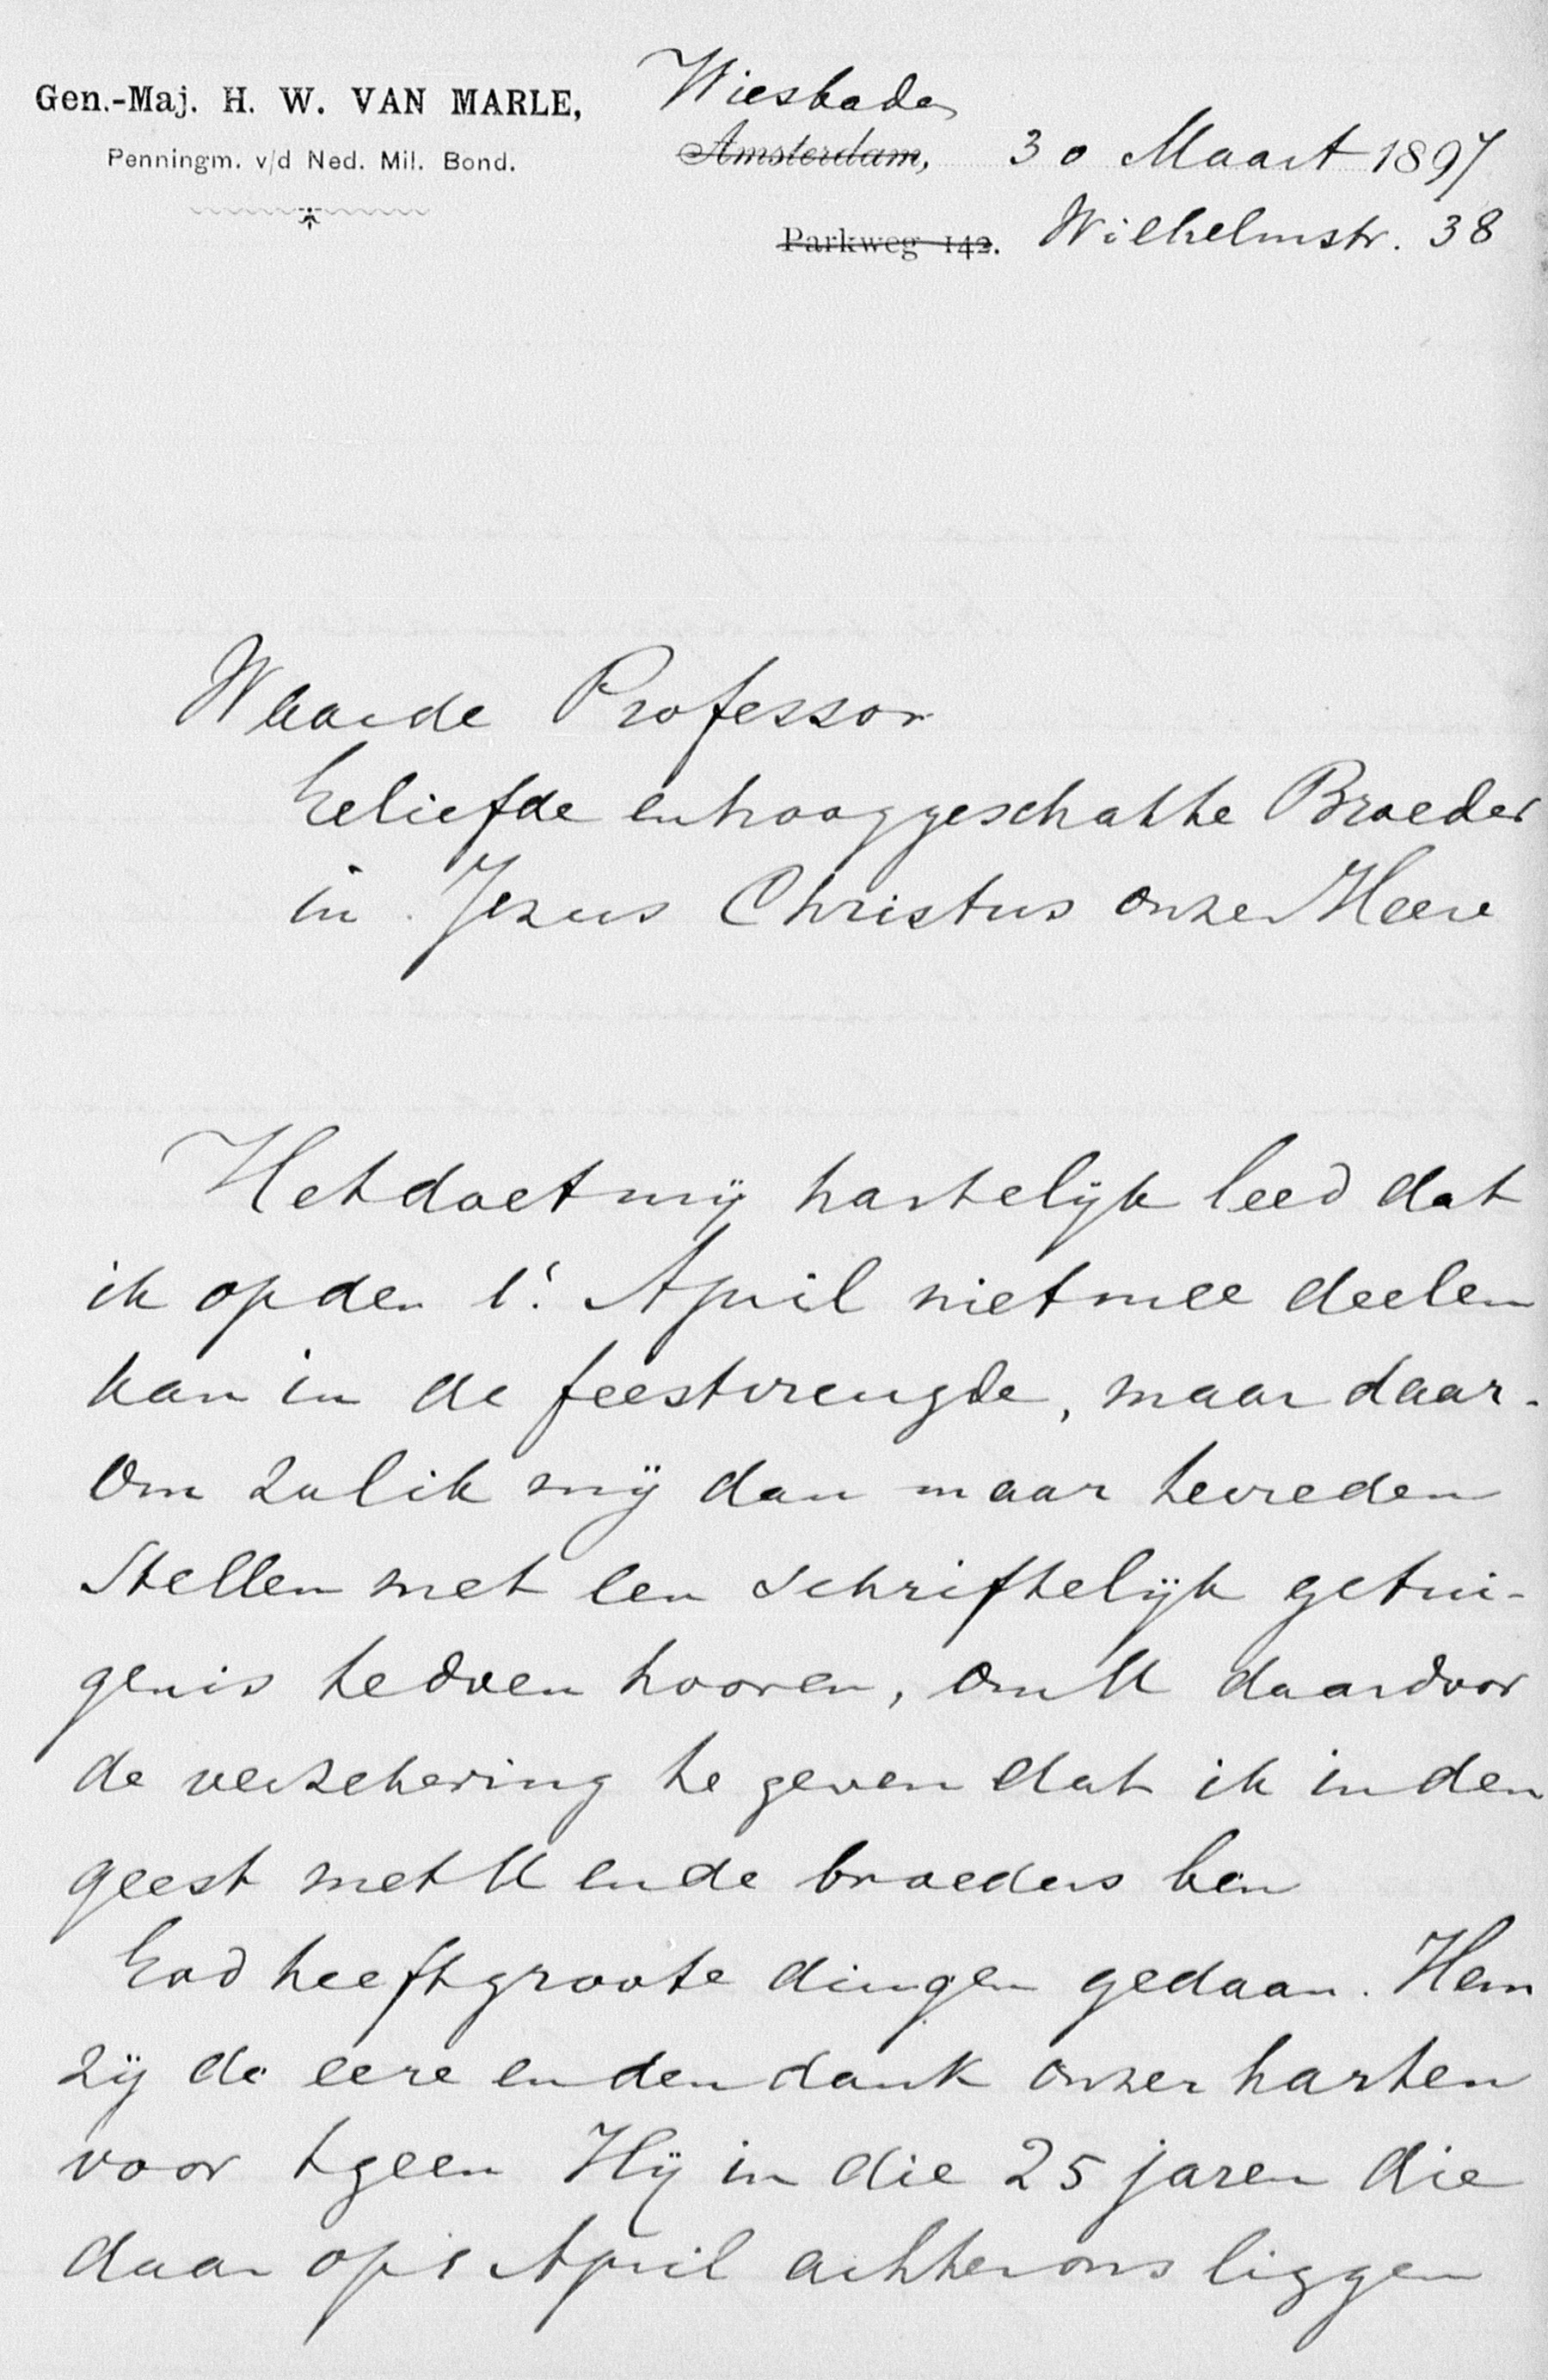 Gen.-Maj. H. W. VAN MARLE,
Penningm. v/d Ned. Mil. Bond.
Wiesbaden
Amsterdam, 30 Maart 1897
Parkweg 142. Wilhelmstr. 38
Waarde Professor
Geliefde en hooggeschatte Broeder
in Jezus Christus onzen Heere
Het doet mij hartelijk leed dat
ik op den 1e April niet mee deelen
kan in de feestvreugde, maar daar-
om zal ik mij dan maar tevreden
stellen met een schriftelijk getui-
genis te doen hooren, om U daardoor
de verzekering te geven dat ik in den
geest met U en de broeders ben
God heeft groote dingen gedaan. Hem
zij de eere en den dank onzer harten
voor tgeen Hij in die 25 jaren die
daar op 1 April achter ons liggen